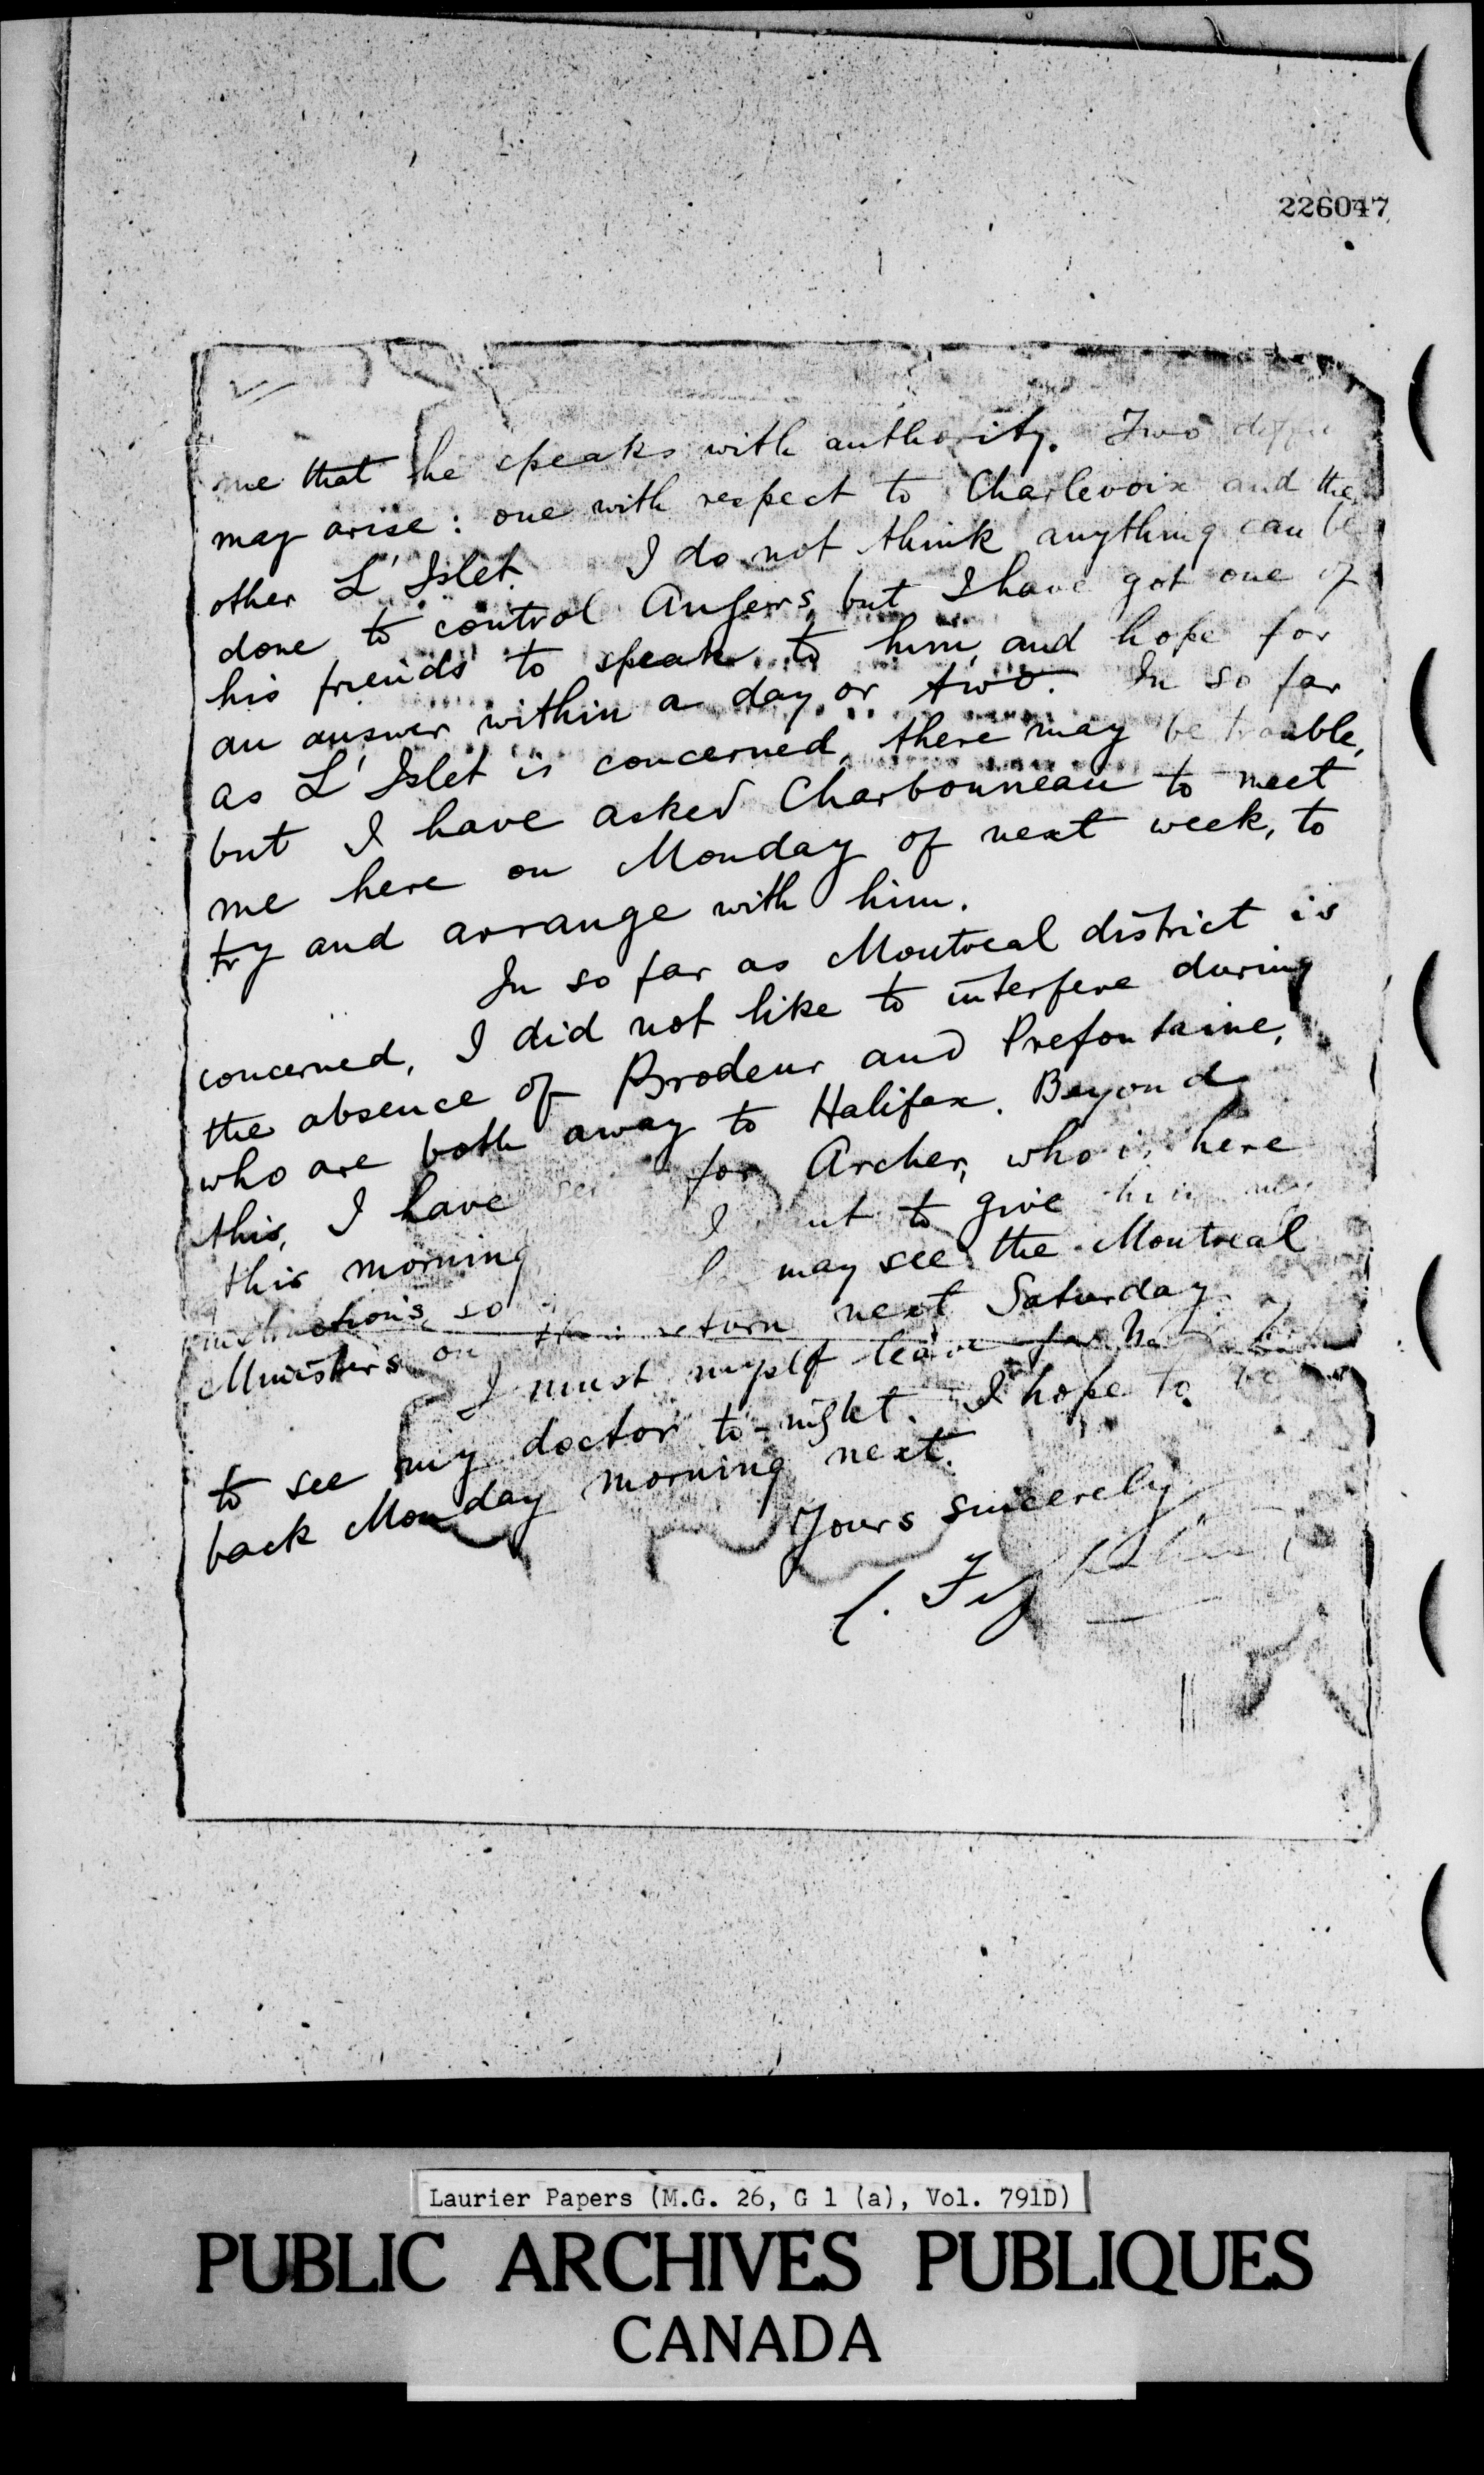 226047
me that he speaks with authority. Two
may arise: one with respect to Charlevoix and the
other L'Islet. I do not think anything can be
done to control Angers, but I have got one of
his friends to speak to him, and hope for
an answer within a day or two. In so far
as L'Islet is concerned, there may be trouble,
but I have asked Charbonneau to meet
me here on Monday of next week, to
try and arrange with him.
In so far as Montreal district is
concerned, I did not like to interfere during
the absence of Brodeur and Prefontaine,
who are both away to Halifax. Beyond
this, I have for Archer, who is here
this morning I to give him my
instructions, so may see the Montreal
Ministers on their return next Saturday.
I must myself leave for
to see my doctor to-night. I hope to be
back Monday morning next.
Yours sincerely
C.
Laurier Papers (M.G. 26, G 1 (a), Vol. 791D)
PUBLIC ARCHIVES PUBLIQUES
CANADA